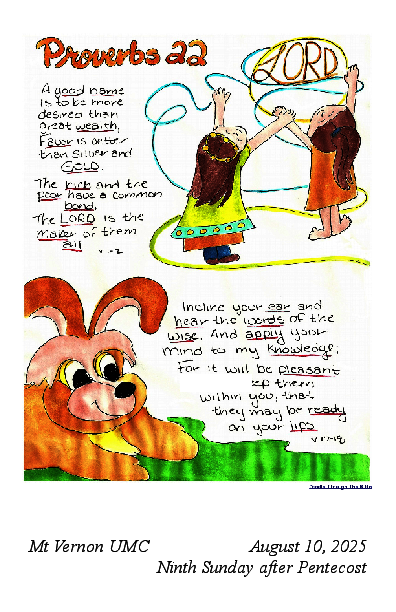 Proverbs 22
LORD
A good name
is to be more
desired than
great wealth,
Favor is better
than Silver and
GOLD.
The rich and the
poor have a common
bond,
The LORD is the
maker of them
all
v 1-2
Incline your ear and
hear the words of the
wise, And apply your
mind to my knowledge;
For it will be pleasant
if
keep them
within you, that
they may be ready
on your lips
v 17-18
Mt Vernon UMC August 10, 2025
Ninth Sunday after Pentecost